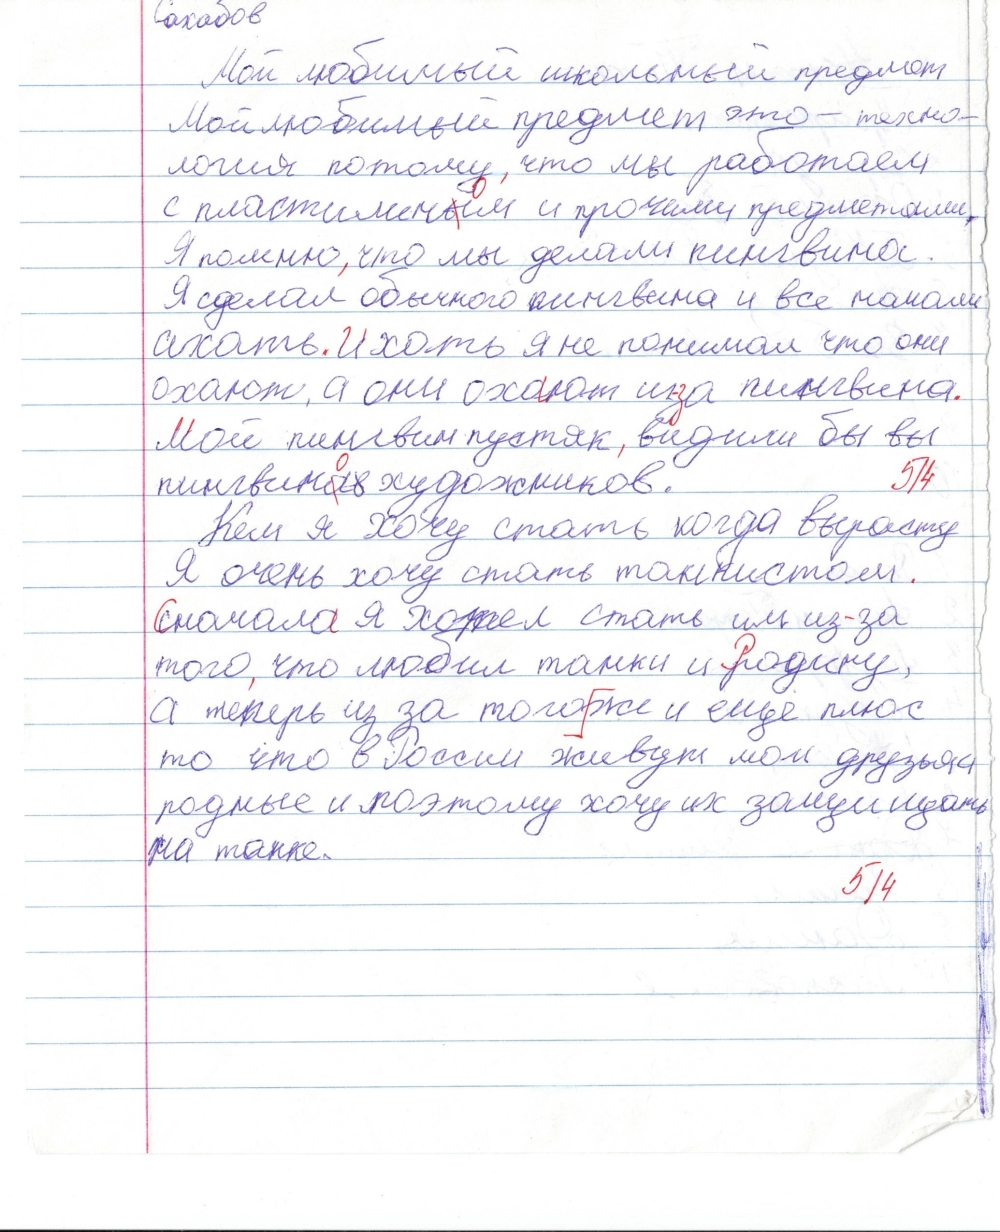 Сахабов
Мой любимый школьный предмет
Мой любимый предмет это – техно-
логия потому, что мы работаем
с пластилином и прочими предметами.
Я помню, что мы делали пингвина.
Я сделал обычного пингвина и все начали
ахать. И хоть я не понимал что они
охают, а они охают из-за пингвина.
Мой пингвин пустяк, видили бы вы
пингвинов художников.
5/4
Кем я хочу стать когда вырасту
Я очень хочу стать танкистом.
Сначала я хотел стать им из-за
того, что любил танки и Родину,
а теперь из за того же и еще плюс
то что в России живут мои друзья и
родные и поэтому хочу их защищать
на танке.
5/4